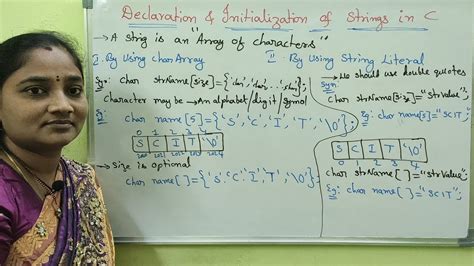 Declaration & Initialization of Strings in C
→ A strig is an "Array of characters"
I. By Using char Array
Syn: char strName[size]={'char1','char2',...,'charn'};
Character may be → An alphabet/digit/symbol
Eg: char name[5]={'S','C','I','T','\0'};
S C I T \0
→ Size is optional
char name[ ]={'S','C','I','T','\0'};
II. By Using String Literal
→ We should use double quotes
Syn:
char strName[size]="strValue";
Eg: char name[5]="SCIT";
S C I T \0
0 1 2 3 4
char strName[ ]="strValue";
Eg: char name[ ]="SCIT";